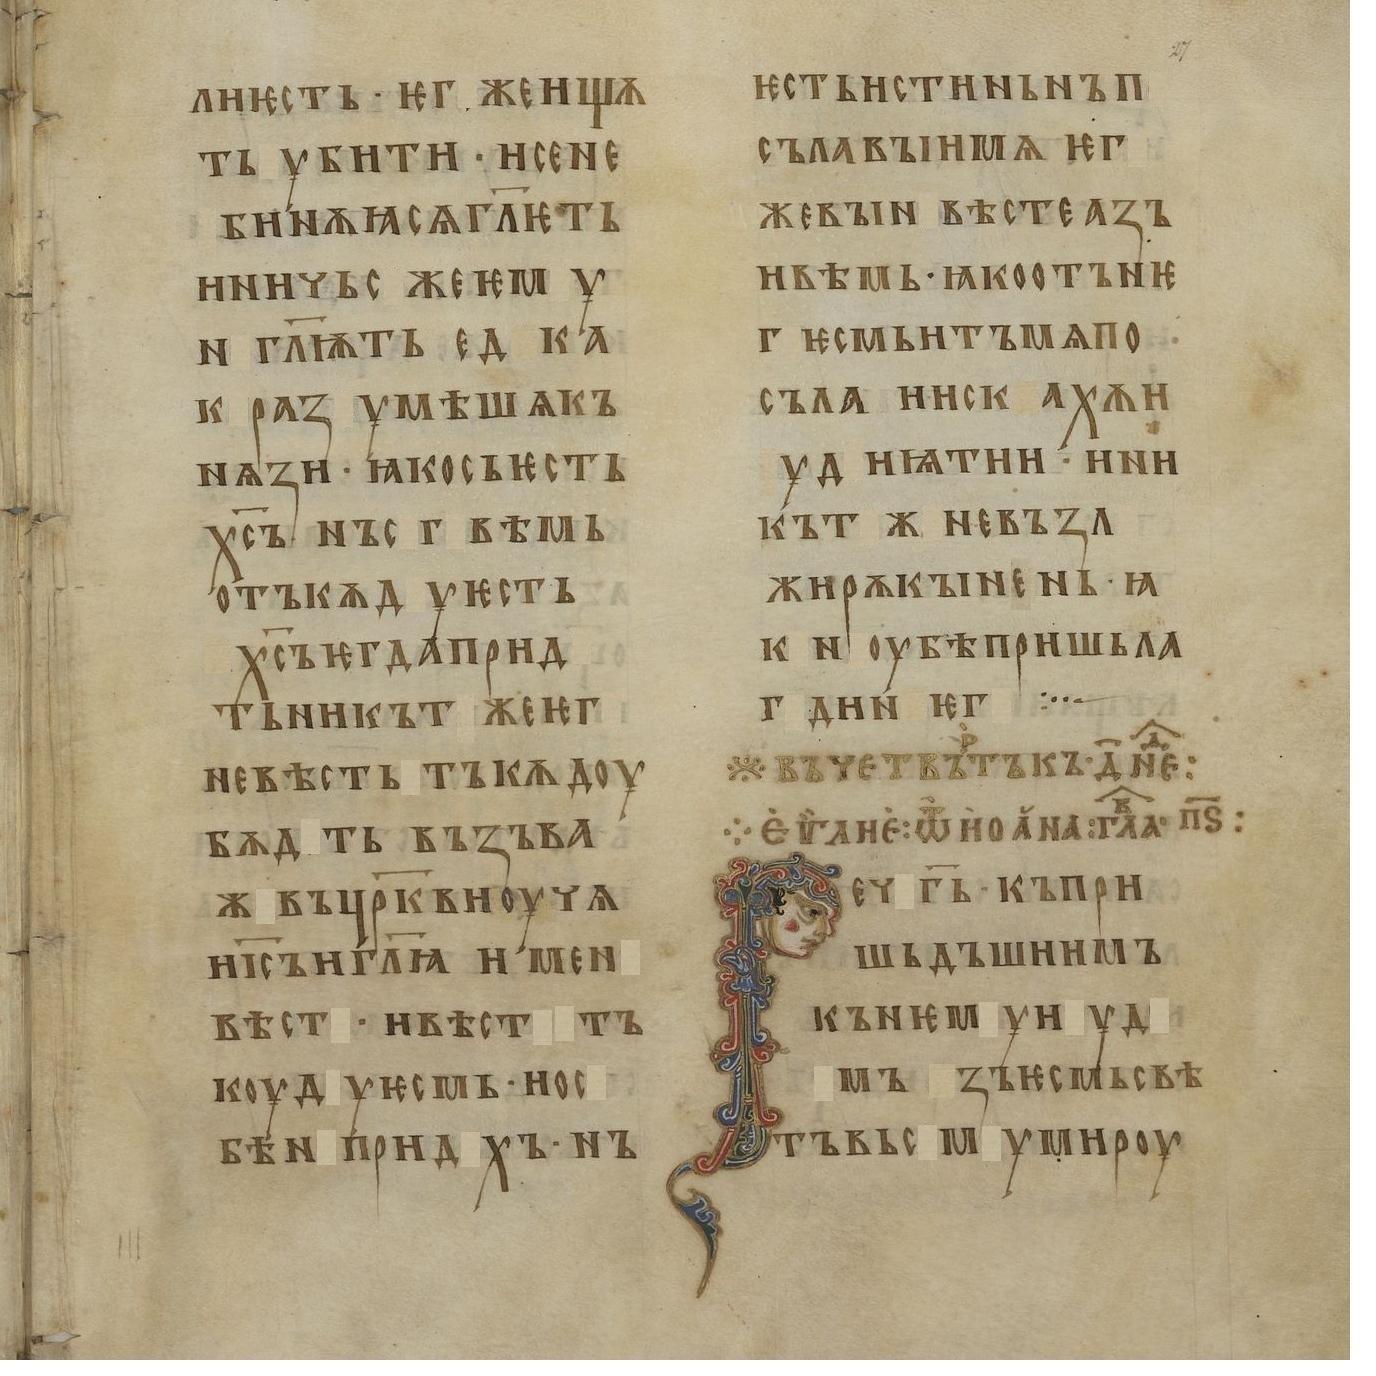 лиѥсть · ѥг жеищѫ
ть убити · исене
бинѫꙗсѧгл҃ѥть
ничьс жеѥм у
н гл҃ѭть ед к а
к раз умѣшѧкъ
нѧзи · ꙗкосьѥсть
хс҃ъ нъс г вѣмь
отъкѫд уѥсть
хс҃ъѥгдаприд
тьникът жеѥг
невѣсть тъкѫдоу
бѫд ть възъва
ж въцр҃квноучѧ
иіс҃ъигл҃ꙗ и мен
вѣст · ивѣст тъ
коуд уѥсмь · иос
бѣн прид хъ · нъ
ѥстьистиньнъп
сълавꙑимѧ ѥг
жевꙑн вѣстеазъ
ивѣмь · ꙗкоотънѥ
г ѥсмьитъмѧпо
съла ииск ахѫи
уд иѩтии · ини
кът ж невъзл
жирѫкꙑнень · ꙗ
к н оубѣпришьла
г дин ѥг
въчетвьртъкъ · д҃ не҃:
еѵг҃лие: ѿ иоана: гла҃в пѕ҃:
еч г҃ь · къпри
шьдъшиимъ
кънѥм уи уд
мъ зъѥсмьсвѣ
тъвьс м умироу